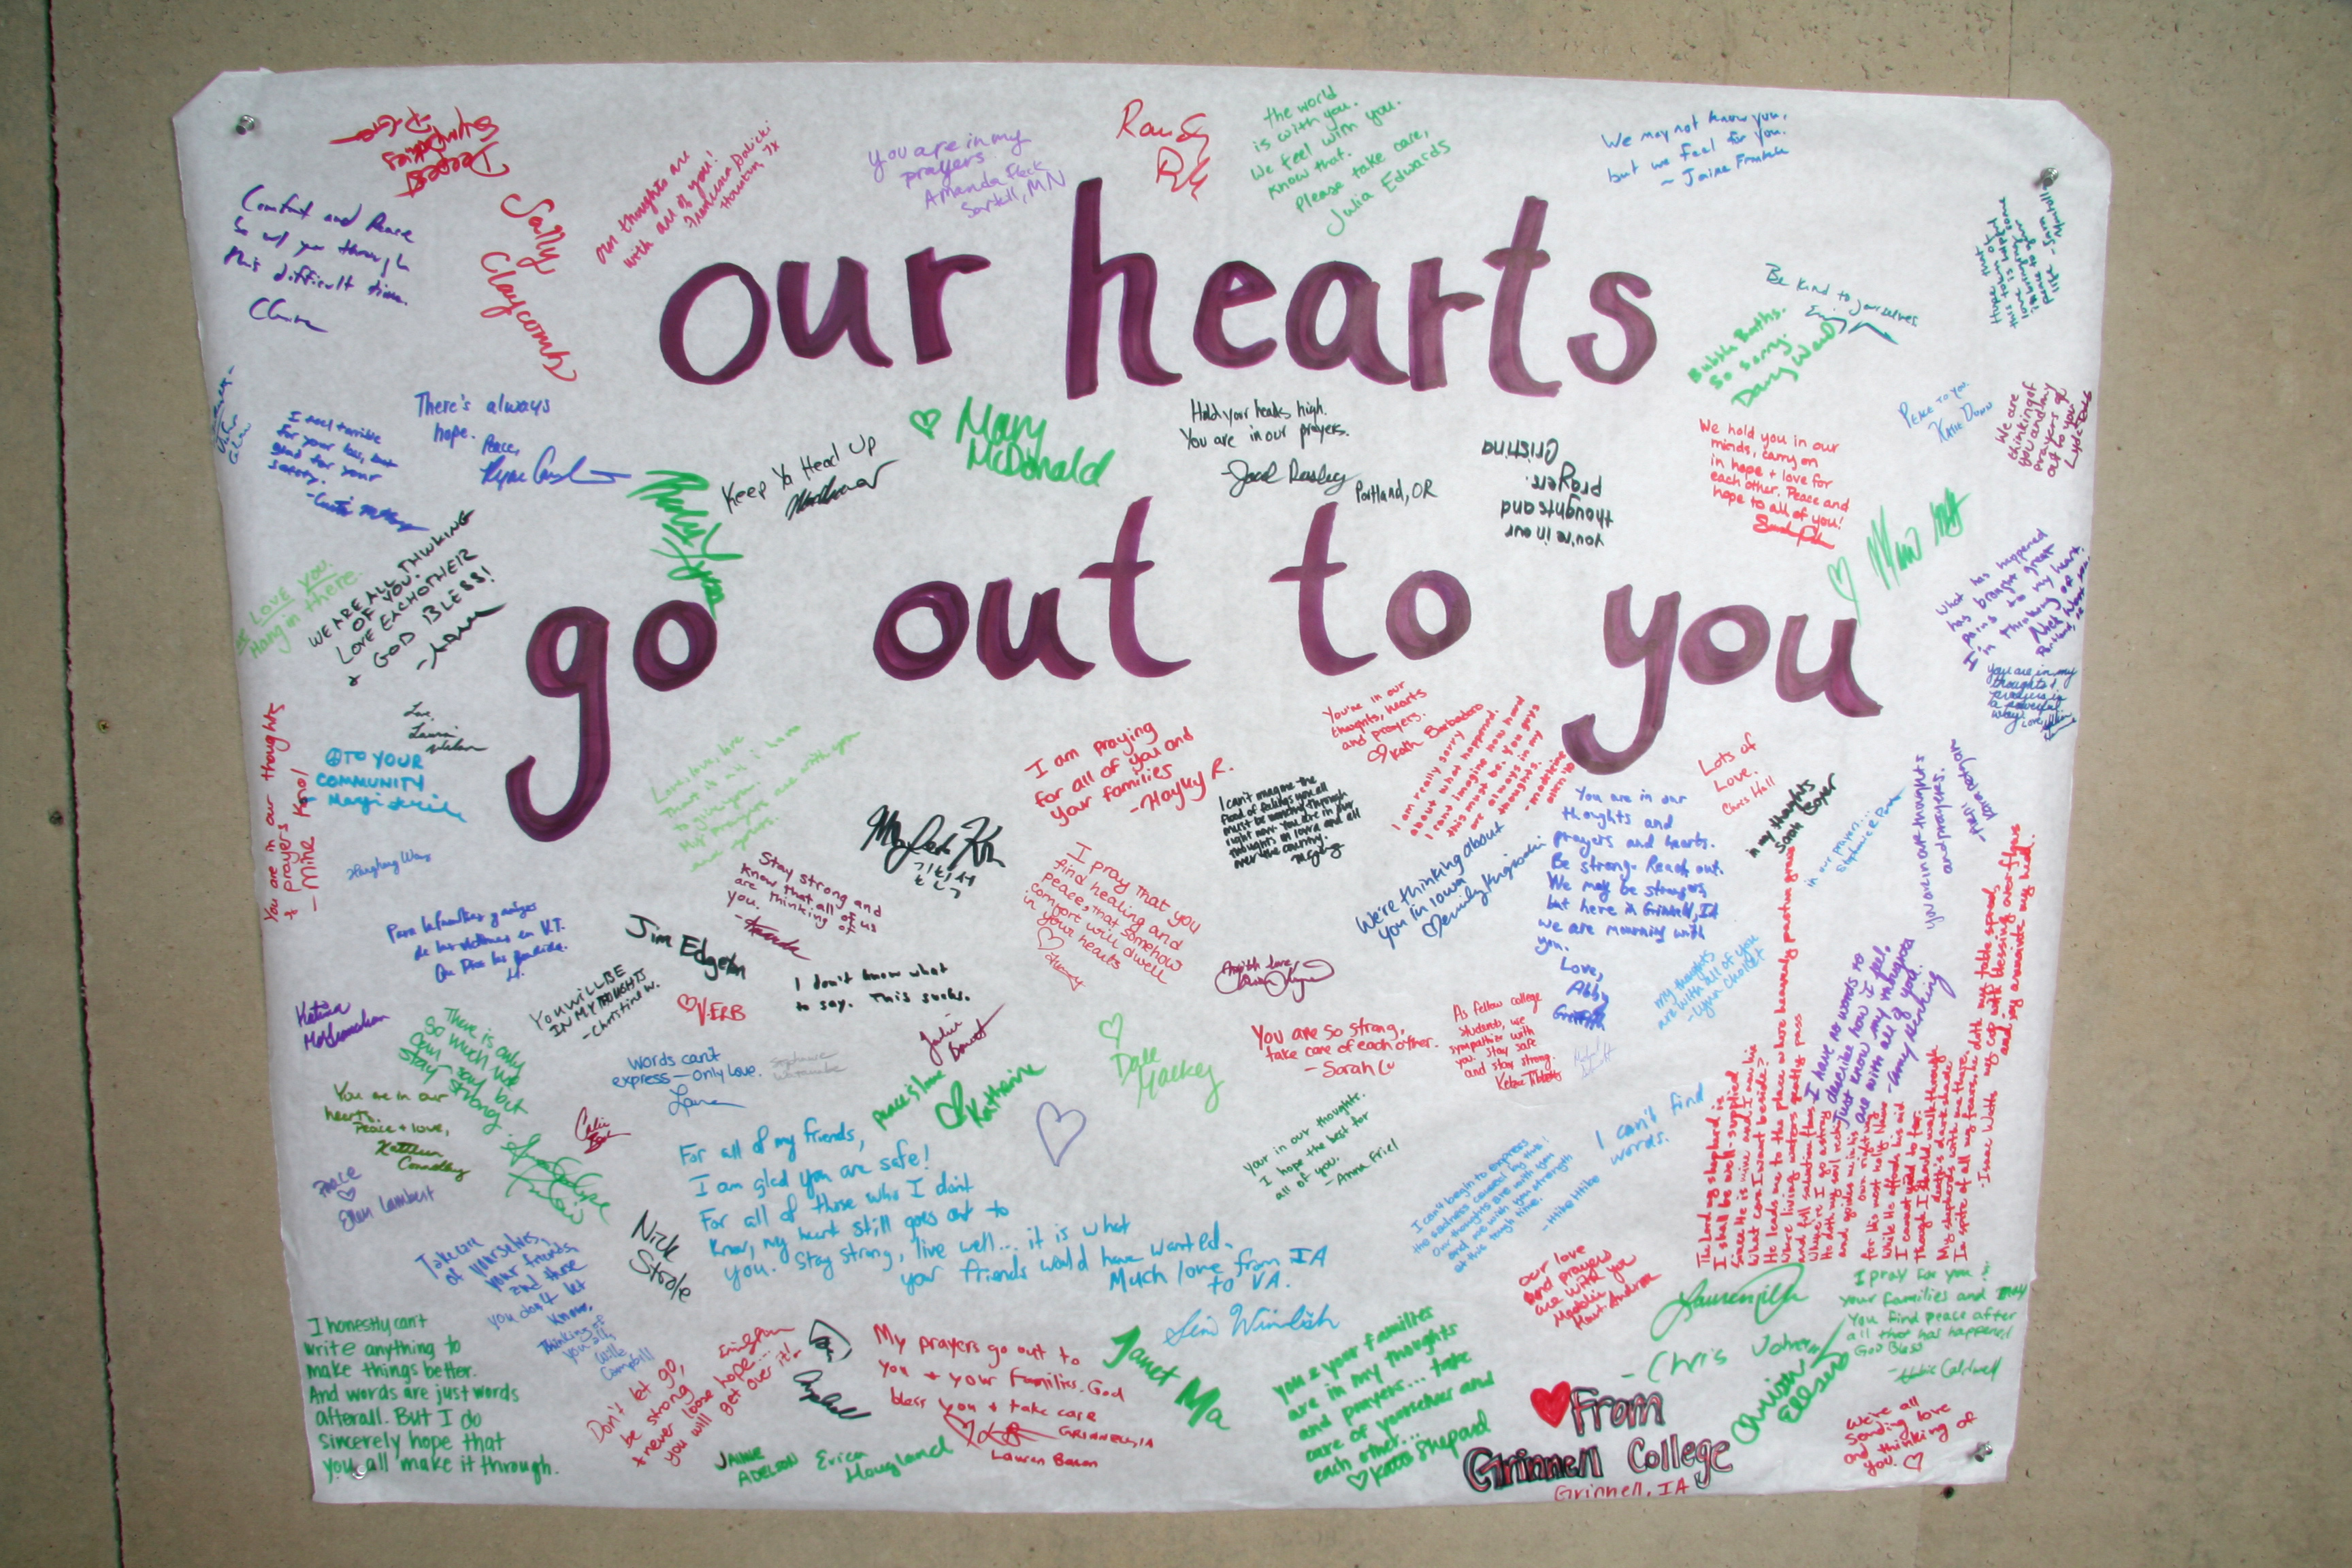 our hearts
go out to you
Sally
Claycomb
our thoughts are
with all of you!
Houston, TX
you are in my
prayers
Amanda Fleck
Sartell, MN
the world
is with you.
We feel with you.
Know that.
Please take care,
Julia Edwards
We may not know you,
but we feel for you.
~ Jaime
Comfort and Peace
to all you through
this difficult time.
Be kind to yourselves
Bubble Baths.
So sorry.
There's always
hope. Peace,
I feel terrible
for your loss, but
glad for your
safety.
Keep Ya Head Up
Mary
McDonald
Hold your heads high.
You are in our prayers.
Portland, OR
you're in our
thoughts and
prayers.
Cristina
We hold you in our
minds, carry on
in hope + love for
each other. Peace and
hope to all of you!
Peace to you.
Katie Dunn
We are
thinking of
you and my
prayers go
out to you
WE LOVE YOU.
Hang in there
WE ARE ALL THINKING
OF YOU.
LOVE EACHOTHER
+ GOD BLESS!
What has happened
has brought great
pain to my heart.
I'm thinking of you
You are in my
thoughts &
prayers in
a powerful
way.
Love,
You are in our thoughts
+ prayers
TO YOUR
COMMUNITY
Love, love, love
That is all I have
to give you.
My prayers are with you
I am praying
for all of you and
your families
- Hayley R.
You're in our
thoughts, hearts
and prayers.
I am really sorry
about what happened.
I can't imagine how hard
this must be. You guys
are always in my
thoughts.
Lots of
Love.
Chris Hall
in my thoughts
Sarah Boyer
in our prayers...
you are in our thoughts
and prayers.
I can't imagine the
flood of feelings you all
must be working through
right now. You are in our
thoughts in Iowa and all
over the country.
We're thinking about
you in Iowa
You are in our
thoughts and
prayers and hearts.
Be strong. Reach out.
We may be strangers,
but here in Grinnell, IA
we are mourning with
you.
Love,
Abby
Griffith
Stay strong and
know that all of us
are thinking of
you.
I pray that you
find healing and
peace, that somehow
comfort will dwell
in your hearts
Jim Edgeton
VERB
I don't know what
to say. This sucks.
YOU WILL BE
IN MY THOUGHTS
- Christine W.
There is only
so much we
can say but
stay strong
Words can't
express — only love.
Laura
peace & love
Katherine
Dale
Mackey
You are so strong,
take care of each other.
- Sarah
As fellow college
students, we
sympathize with
you. Stay safe
and stay strong.
my thoughts
are with all of you
I have no words to
describe how I feel,
Just know my thoughts
are with all of you.
The Lord my shepherd is
I shall be well-supplied
Since He is mine and I am his
what can I want beside?
He leads me to the place where heavenly pasture grows
where living waters gently pass
and full salvation flows
If e'er I go astray
He doth my soul reclaim
and guides me in his
own right way
for his most holy Name
While He affords his aid
I cannot yield to fear
Though I should walk through
death's dark shade
My shepherd's with me there.
In spite of all my fears, he doth my table spread,
my cup with blessings overflows
and joy anointe my head.
- Isaac Watts
You are in our
hearts.
Peace + love,
Kathleen
Connolly
Peace
Ellen Lambert
For all of my friends,
I am glad you are safe!
For all of those who I don't
know, my heart still goes out to
you. Stay strong, live well... it is what
your friends would have wanted.
Much love from IA
to VA.
Your in our thoughts.
I hope the best for
all of you.
- Anna Friel
I can't begin to express
the sadness caused by this!
Our thoughts are with you
and we wish you strength
at this tough time.
I can't find
words.
Take care
of yourselves,
your friends,
and those
you don't let
know.
Thinking of
you all,
Wille
Campbell
Nick
Strole
our love
and prayers
are with you
I pray for you &
your families and may
you find peace after
all that has happened
God Bless
I honestly can't
write anything to
make things better.
And words are just words
afterall. But I do
sincerely hope that
you all make it through.
Don't let go,
be strong
+ never loose hope...
you will get over it!
My prayers go out to
you + your families. God
bless you + take care
GRINNELL, IA
Lauren Bacon
JAIMIE
ADELSON
Erica
Hougland
Janet Ma
you & your families
are in my thoughts
and prayers... take
care of yourselves and
each other...
Kate Shepard
From
Grinnell College
Grinnell, IA
We're all
sending love
and thinking of
you.